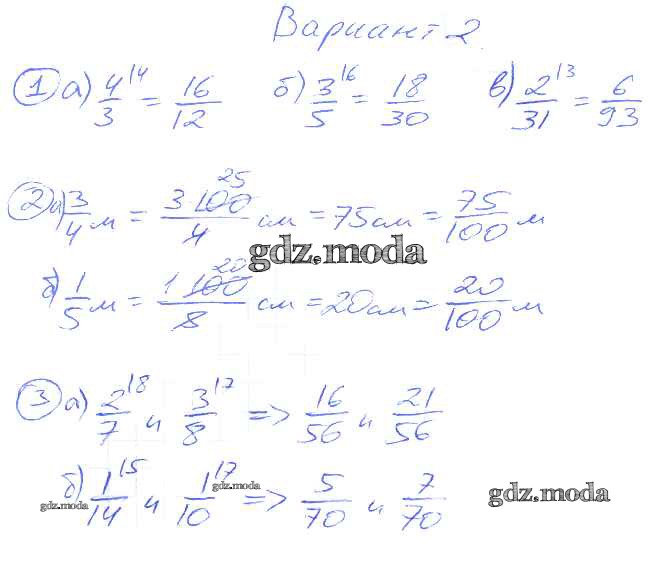 Вариант 2.
① а) 4/3 ^14 = 16/12 б) 3/5 ^16 = 18/30 в) 2/31 ^13 = 6/93
② а) 3/4 м = 3 100/4 25 см = 75 см = 75/100 м
gdz.moda
б) 1/5 м = 1 100/8 20 см = 20 см = 20/100 м
③ а) 2/7 ^18 и 3/8 ^17 => 16/56 и 21/56
б) 1/14 ^15 и 1/10 ^17 => 5/70 и 7/70
gdz.moda
gdz.moda
gdz.moda